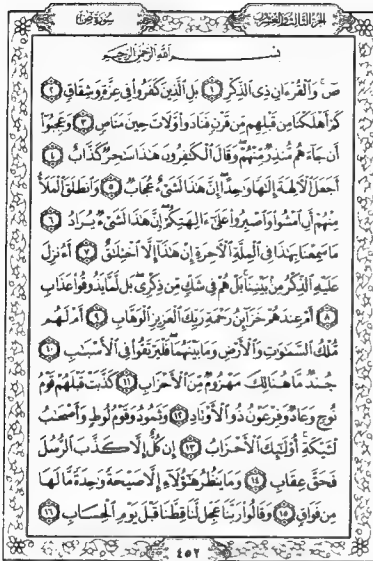 الجزء الثالث والعشرون
سورة ص
بسم الله الرحمن الرحيم
صٓ ۚ وَٱلْقُرْءَانِ ذِى ٱلذِّكْرِ ١ بَلِ ٱلَّذِينَ كَفَرُوا۟ فِى عِزَّةٍ وَشِقَاقٍ ٢
كَمْ أَهْلَكْنَا مِن قَبْلِهِم مِّن قَرْنٍ فَنَادَوا۟ وَّلَاتَ حِينَ مَنَاصٍ ٣ وَعَجِبُوٓا۟
أَن جَآءَهُم مُّنذِرٌ مِّنْهُمْ ۖ وَقَالَ ٱلْكَٰفِرُونَ هَٰذَا سَٰحِرٌ كَذَّابٌ ٤
أَجَعَلَ ٱلْءَالِهَةَ إِلَٰهًا وَٰحِدًا ۖ إِنَّ هَٰذَا لَشَىْءٌ عُجَابٌ ٥ وَٱنطَلَقَ ٱلْمَلَأُ
مِنْهُمْ أَنِ ٱمْشُوا۟ وَٱصْبِرُوا۟ عَلَىٰٓ ءَالِهَتِكُمْ ۖ إِنَّ هَٰذَا لَشَىْءٌ يُرَادُ ٦
مَا سَمِعْنَا بِهَٰذَا فِى ٱلْمِلَّةِ ٱلْءَاخِرَةِ إِنْ هَٰذَآ إِلَّا ٱخْتِلَٰقٌ ٧ أَءُنزِلَ
عَلَيْهِ ٱلذِّكْرُ مِنۢ بَيْنِنَا ۚ بَلْ هُمْ فِى شَكٍّ مِّن ذِكْرِى ۖ بَل لَّمَّا يَذُوقُوا۟ عَذَابِ
٨ أَمْ عِندَهُمْ خَزَآئِنُ رَحْمَةِ رَبِّكَ ٱلْعَزِيزِ ٱلْوَهَّابِ ٩ أَمْ لَهُم
مُّلْكُ ٱلسَّمَٰوَٰتِ وَٱلْأَرْضِ وَمَا بَيْنَهُمَا ۖ فَلْيَرْتَقُوا۟ فِى ٱلْأَسْبَٰبِ ١٠
جُندٌ مَّا هُنَالِكَ مَهْزُومٌ مِّنَ ٱلْأَحْزَابِ ١١ كَذَّبَتْ قَبْلَهُمْ قَوْمُ
نُوحٍ وَعَادٌ وَفِرْعَوْنُ ذُو ٱلْأَوْتَادِ ١٢ وَثَمُودُ وَقَوْمُ لُوطٍ وَأَصْحَٰبُ
لْـَٔيْكَةِ ۚ أُو۟لَٰٓئِكَ ٱلْأَحْزَابُ ١٣ إِن كُلٌّ إِلَّا كَذَّبَ ٱلرُّسُلَ
فَحَقَّ عِقَابِ ١٤ وَمَا يَنظُرُ هَٰٓؤُلَآءِ إِلَّا صَيْحَةً وَٰحِدَةً مَّا لَهَا
مِن فَوَاقٍ ١٥ وَقَالُوا۟ رَبَّنَا عَجِّل لَّنَا قِطَّنَا قَبْلَ يَوْمِ ٱلْحِسَابِ ١٦
٤٥٢